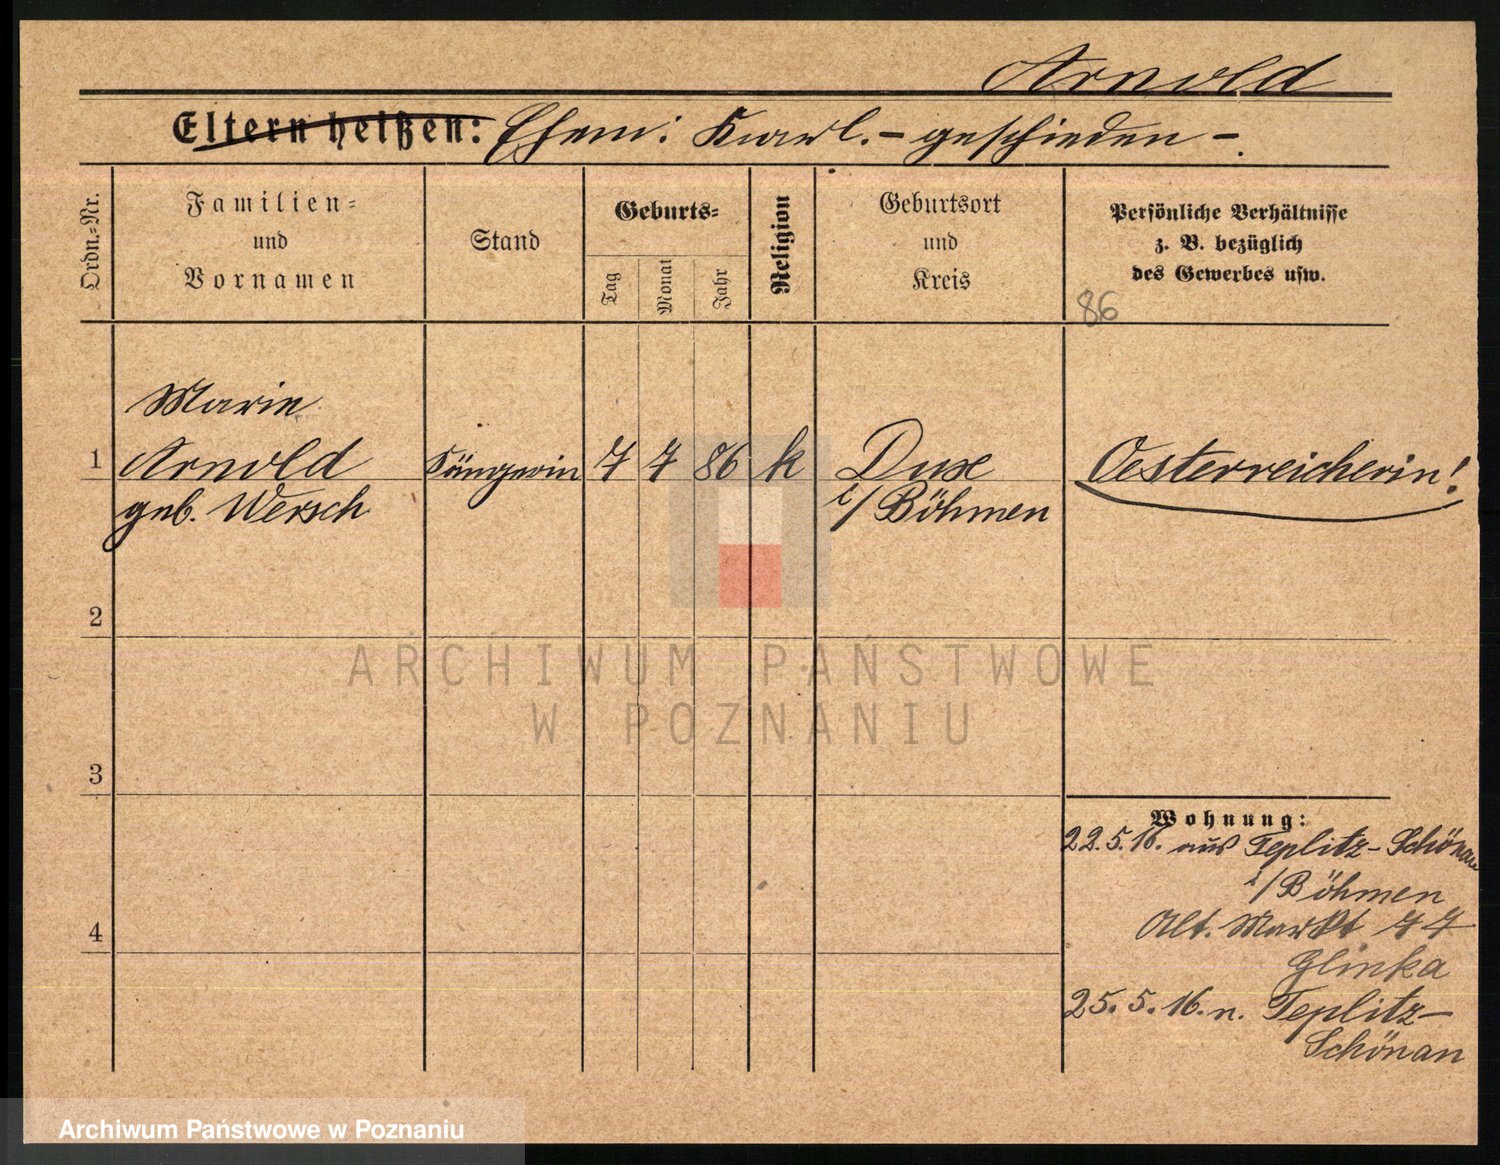 Arnold
Eltern heißen: Ehem: Karl. – geschieden –.
Ordn.=Nr.
Familien=
und
Vornamen
Stand
Geburts=
Tag
Monat
Jahr
Religion
Geburtsort
und
Kreis
Persönliche Verhältnisse
z. B. bezüglich
des Gewerbes usw.
86
Marie
1 Arnold Sängerin 7 7 86 k Dux Oesterreicherin!
geb. Wersch i/Böhmen
2
ARCHIWUM PAŃSTWOWE
W POZNANIU
3
Wohnung:
22.5.16. aus Teplitz-Schönau
i/Böhmen
4 Alt. Markt 77
Glinka
25.5.16. n. Teplitz-
Schönau
Archiwum Państwowe w Poznaniu